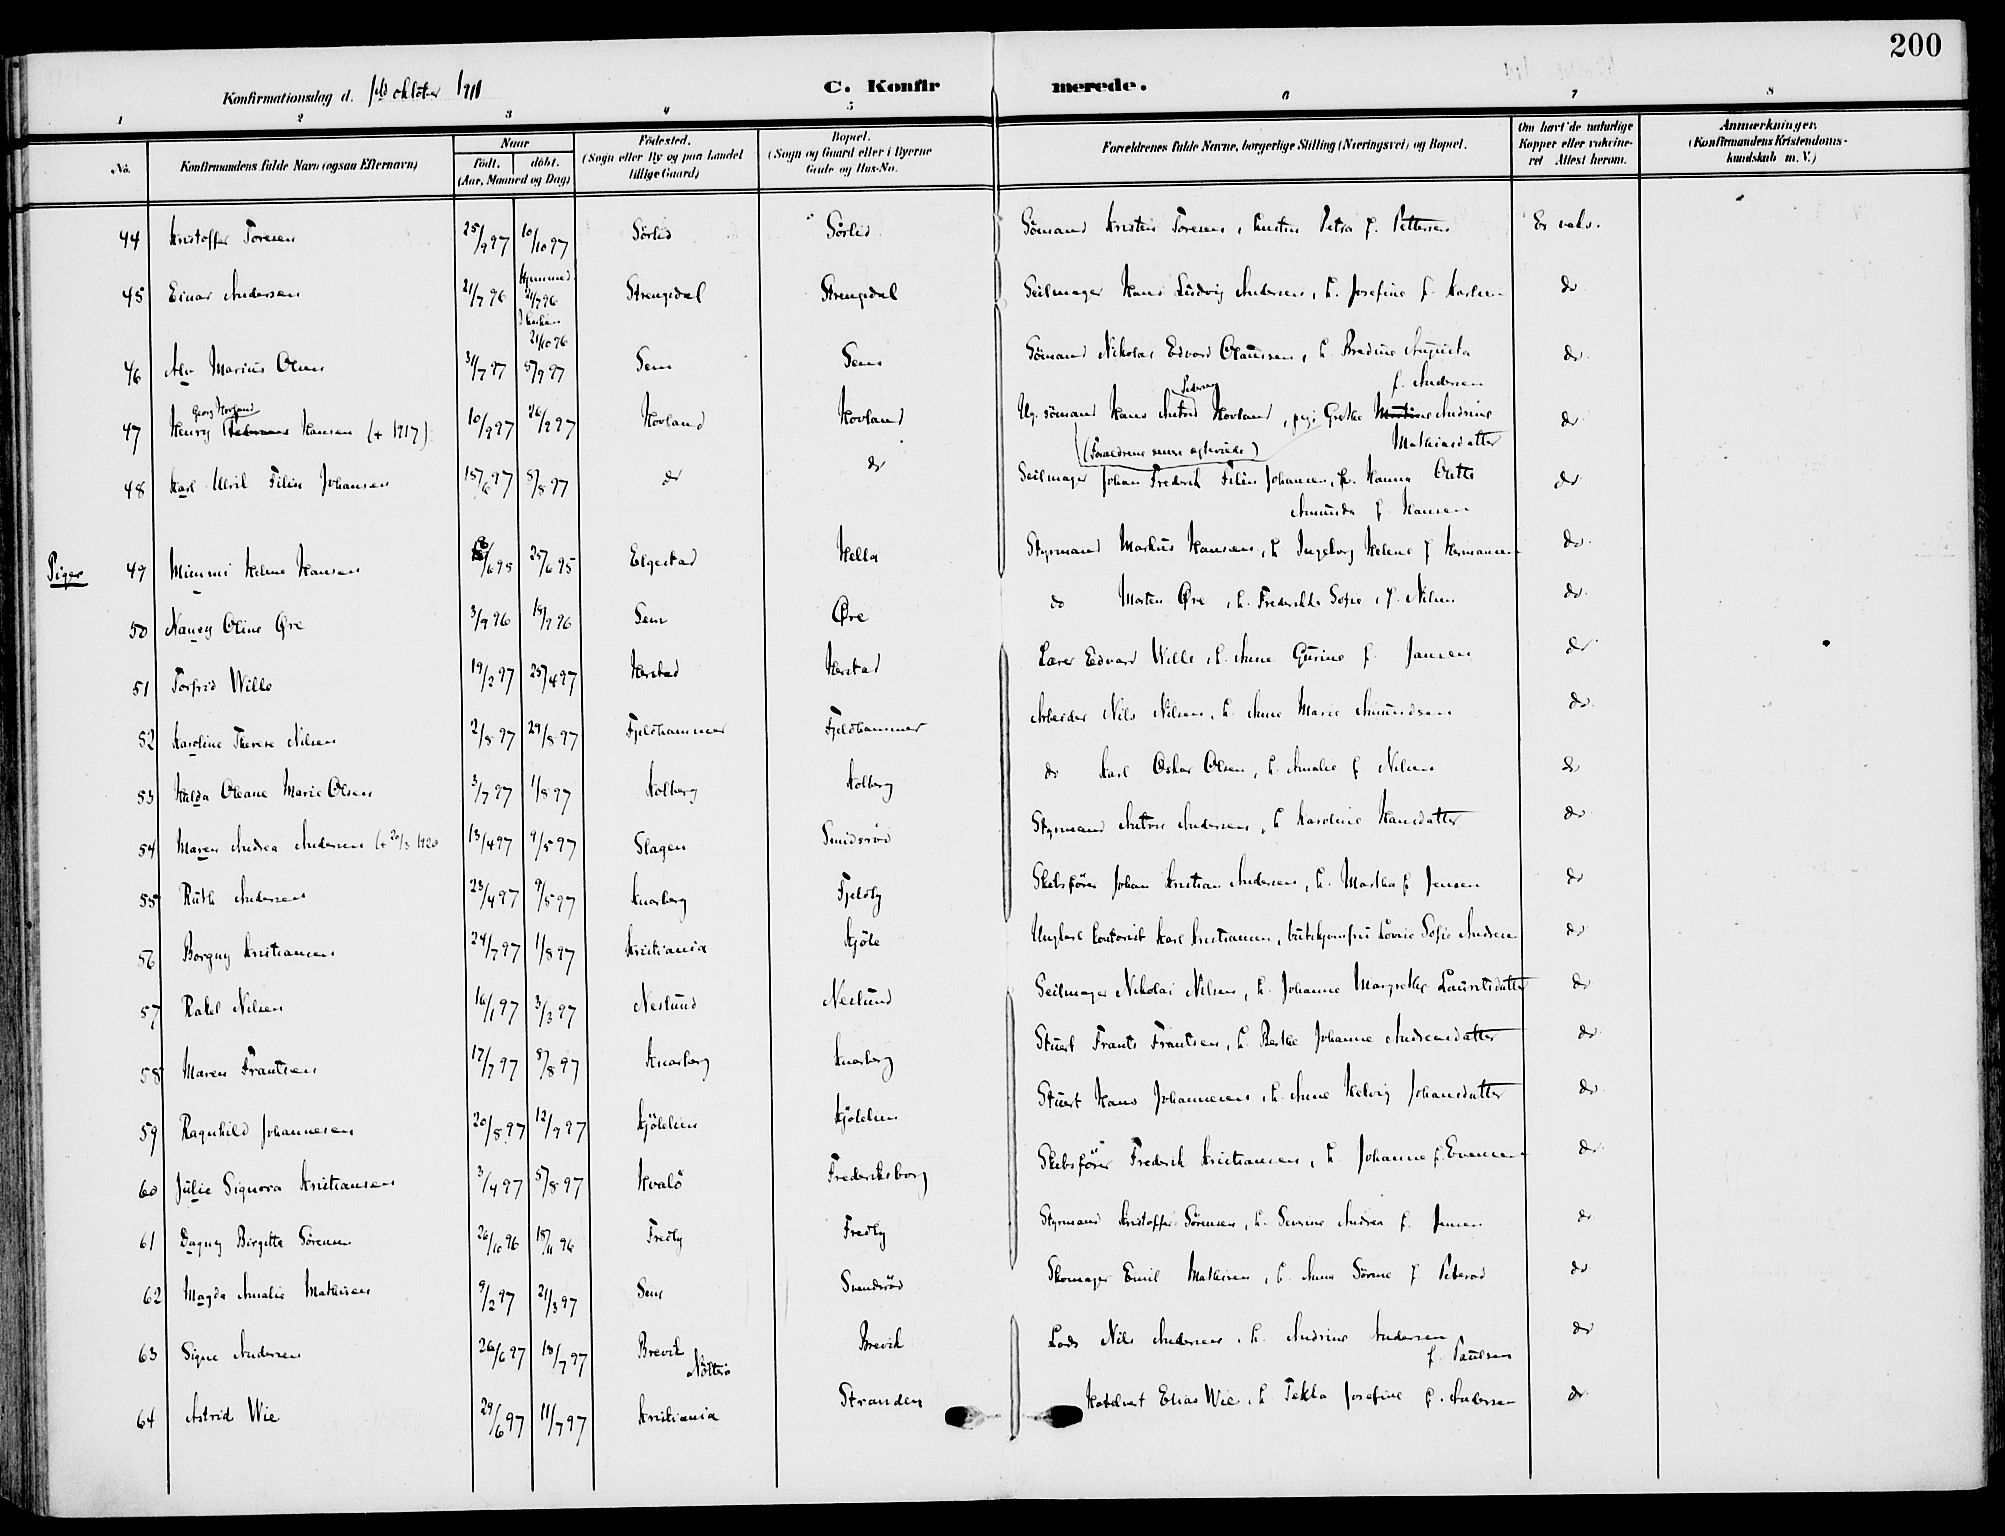 200
Konfirmationsdag d. oktober 1911
C. Konfirmerede.
1 2 3 4 5 6 7 8
No. Konfirmandens fulde Navn (ogsaa Efternavn) Naar født. døbt. (Aar, Maaned og Dag) Fødested. (Sogn eller By og paa Landet tillige Gaard) Bopæl. (Sogn og Gaard eller i Byerne Gade og Hus-No. Forældrenes fulde Navne, borgerlige Stilling (Næringsvei) og Bopæl. Om havt de naturlige Kopper eller vaccineret Attest herom. Anmærkninger. (Konfirmandens Kristendomskundskab m. V.)
44 Kristoffer Toresen 25/9 97 10/10 97 Sörlid Sörlid Sömand Kristen Toresen, hustru Petra f. Pettersen Er vaks.
45 Einar Andersen 21/7 96 Hjemmed. 21/7 96 I kirken 21/10 96 Strengsdal Strengsdal Seilmager Hans Ludvig Andersen, h. Josefine f. Karlsen do
46 Alv Marius Olsen 31/7 97 5/9 97 Sem Sem Sömand Nikolai Edvard Olaussen, h. Bredine Augusta f. Andersen do
47 Henry Georg Hovland Hansen (+ 1917) 10/9 97 26/9 97 Hovland Hovland Ug. sömand Hans Astrid Pedersen Hovland, pige Grethe Martine Andrine Mathiasdatter do
(Forældrene senere egteviede)
48 Karl Ulrik Filin Johansen 15/6 97 8/8 97 do do Seilmager Johan Fredrik Filin Johansen, h. Hanna Olette Amunda f. Hansen do
Piger
49 Mimmi Helene Hansen /6 95 25/6 95 Elgestad Hella Styrmand Markus Hansen, h. Ingeborg Helene f. Hermansen do
50 Nancy Oline Øre 3/9 96 18/9 96 Sem Øre do Morten Øre, h. Fredrikke Sofie, f. Nilsen do
51 Torfrid Wille 19/2 97 25/4 97 Herstad Herstad Lærer Edvard Wille, h. Anne Gurine f. Jansen do
52 Karoline Therese Nilsen 2/8 97 29/8 97 Fjeldhammer Fjeldhammer Arbeider Nils Nilsen, h. Anne Marie Amundsen do
53 Hulda Oleane Marie Olsen 3/7 97 1/8 97 Kolberg Kolberg do Karl Oskar Olsen, h. Amalie f. Nilsen do
54 Maren Andrea Andersen (+ 20/3 1920 13/4 97 9/5 97 Slagen Smidsröd Styrmand Anton Andersen, h. Karoline Hansdatter do
55 Ruth Andersen 23/4 97 9/5 97 Knarberg Fjeldby Skibsförer Johan Kristian Andersen, h. Martha f. Jensen do
56 Borgny Kristiansen 24/7 97 1/8 97 Kristiania Kjöle Ungkarl kontorist Karl Kristiansen, butikjomfru Lovise Sofie Andersen do
57 Rakel Nilsen 16/1 97 3/3 97 Neslund Neslund Seilmager Nikolai Nilsen, h. Johanne Margrethe Lauritsdatter do
58 Maren Frantsen 17/7 97 8/8 97 Knarberg Knarberg Stuert Frants Frantsen, h. Berthe Johanne Andreasdatter do
59 Ragnhild Johannesen 20/8 97 12/9 97 Kjölelien Kjölelien Stuert Hans Johannesen, h. Anne Helvig Johansdatter do
60 Julie Signora Kristiansen 3/4 97 5/8 97 Hvalö Frederiksborg Skibsförer Fredrik Kristiansen, h. Johanne f. Evensen do
61 Dagny Birgitte Sörensen 26/10 96 15/11 96 Fredly Fredly Styrmand Kristoffer Sörensen, h. Severine Andrea f. Jensen do
62 Magda Amalie Mathisen 9/2 97 21/3 97 Sem Svendsröd Skomager Emil Mathisen, h. Anna Sörine f. Petersd do
63 Signe Andersen 26/6 97 18/7 97 Brevik Nötterö Brevik Lods Nils Andersen, h. Andrine Andersen f. Paulsen do
64 Astrid Wie 29/6 97 11/7 97 Kristiania Stranden Elias Wie, h. Tekla Josefine f. Andersen do